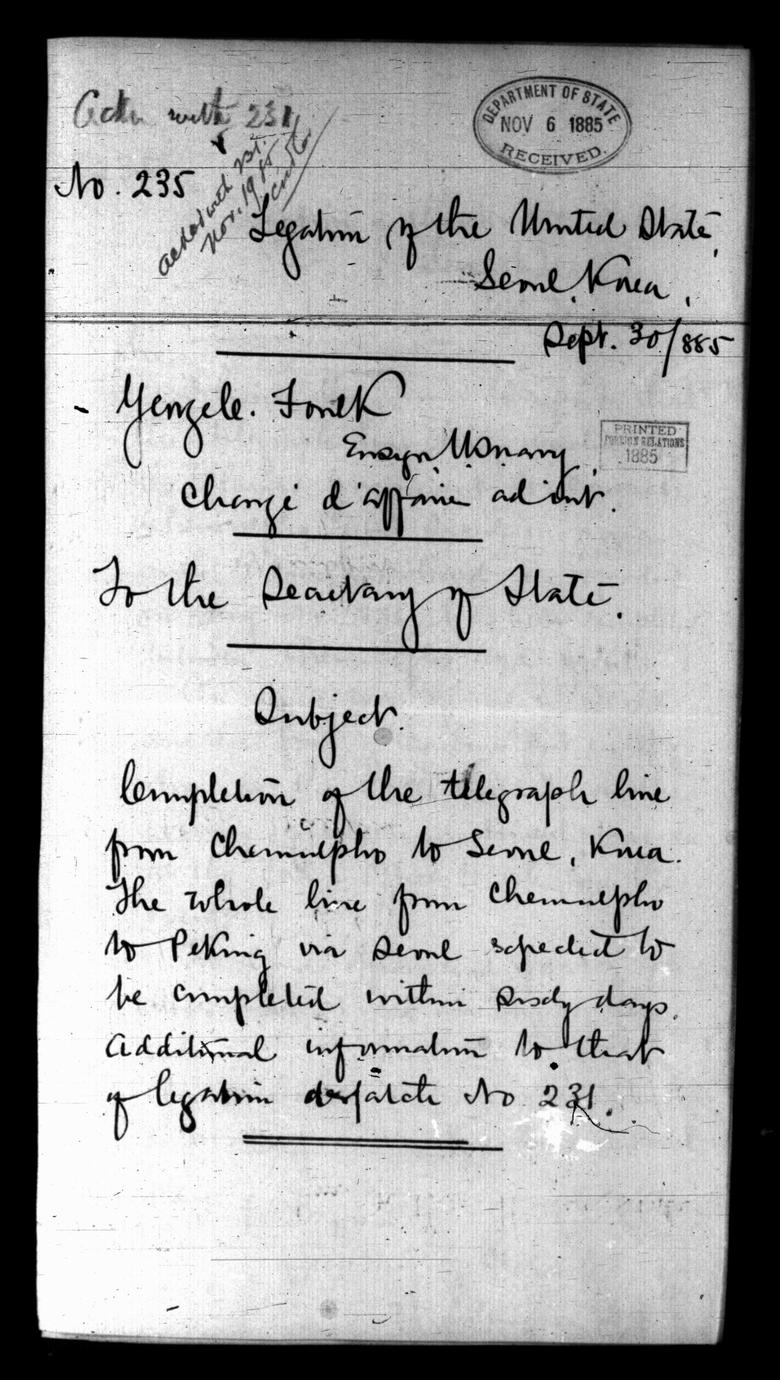 Ackn with 231
DEPARTMENT OF STATE
NOV 6 1885
RECEIVED.
No. 235
acked with 231.
Nov. 19 85
Legation of the United States,
Seoul, Korea,
Sept. 30/885
George C. Foulk
Ensign US navy,
Chargé d'affaires ad int.
PRINTED
FOREIGN RELATIONS
1885
To the Secretary of State.
Subject.
Completion of the telegraph line
from Chemulpho to Seoul, Korea.
The whole line from Chemulpho
to Peking via Seoul expected to
be completed within sixty days.
Additional information to that
of legation despatch No 231.